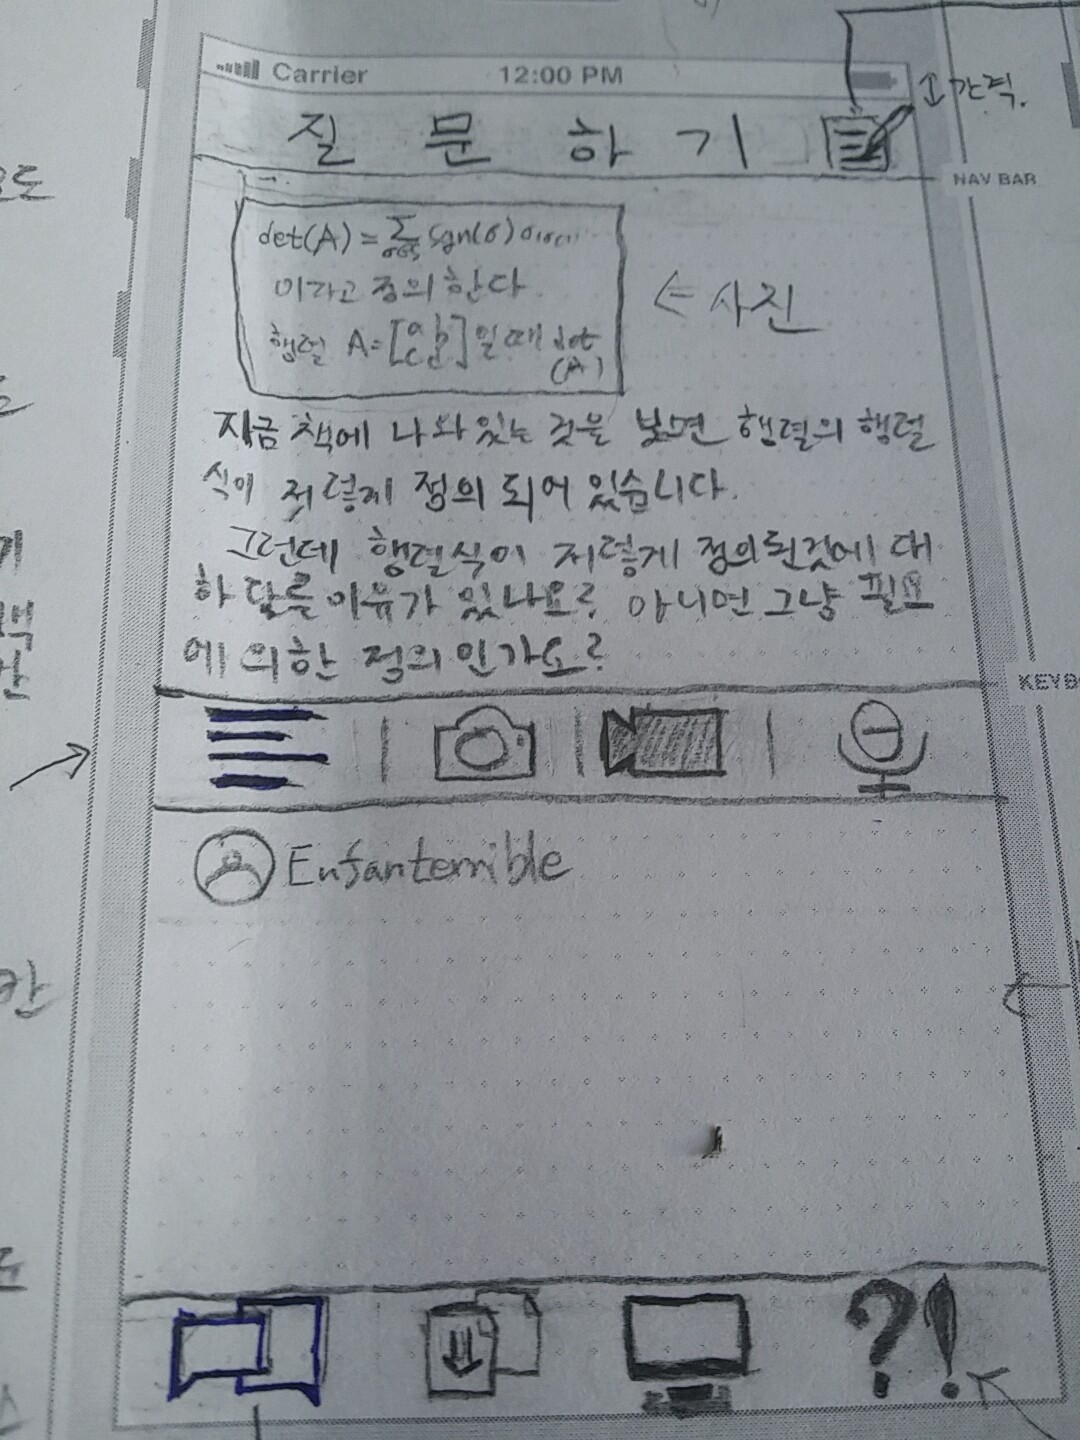 Carrier 12:00 PM
질 문 하 기
NAV BAR
det(A) = Σ sgn(σ)
이라고 정의한다
행렬 A= [a b c D] 일때 det (A)
⇐ 사진
지금 책에 나와있는 것을 보면 행렬의 행렬
식이 저렇게 정의 되어 있습니다.
그런데 행렬식이 저렇게 정의된것에 대
하 이유가 있나요? 아니면 그냥 필요
에 의한 정의인가요?
KEYB
Enfanterrible
?!